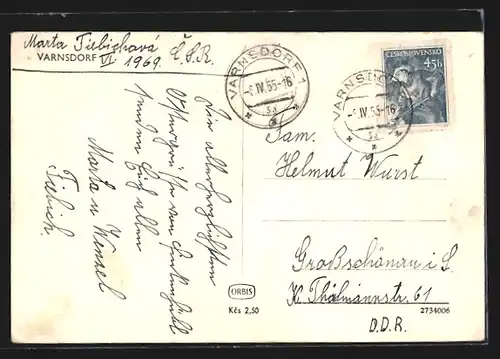 Marta Tiebichová Č.S.R.
VARNSDORF VI 1969.
VARNSDORF 1
-6.IV.55-16
3a
ČESKOSLOVENSKO
45h
VARNSDORF
-6.IV.55-16
Die allerherzlichsten
Ostergrüße von
senden Euch allen
Marta u Wenzel
Tiebich.
Fam.
Helmut Wurst
Großschönau i S.
K. Thälmannstr. 61
D.D.R.
ORBIS
Kčs 2,50
2734006